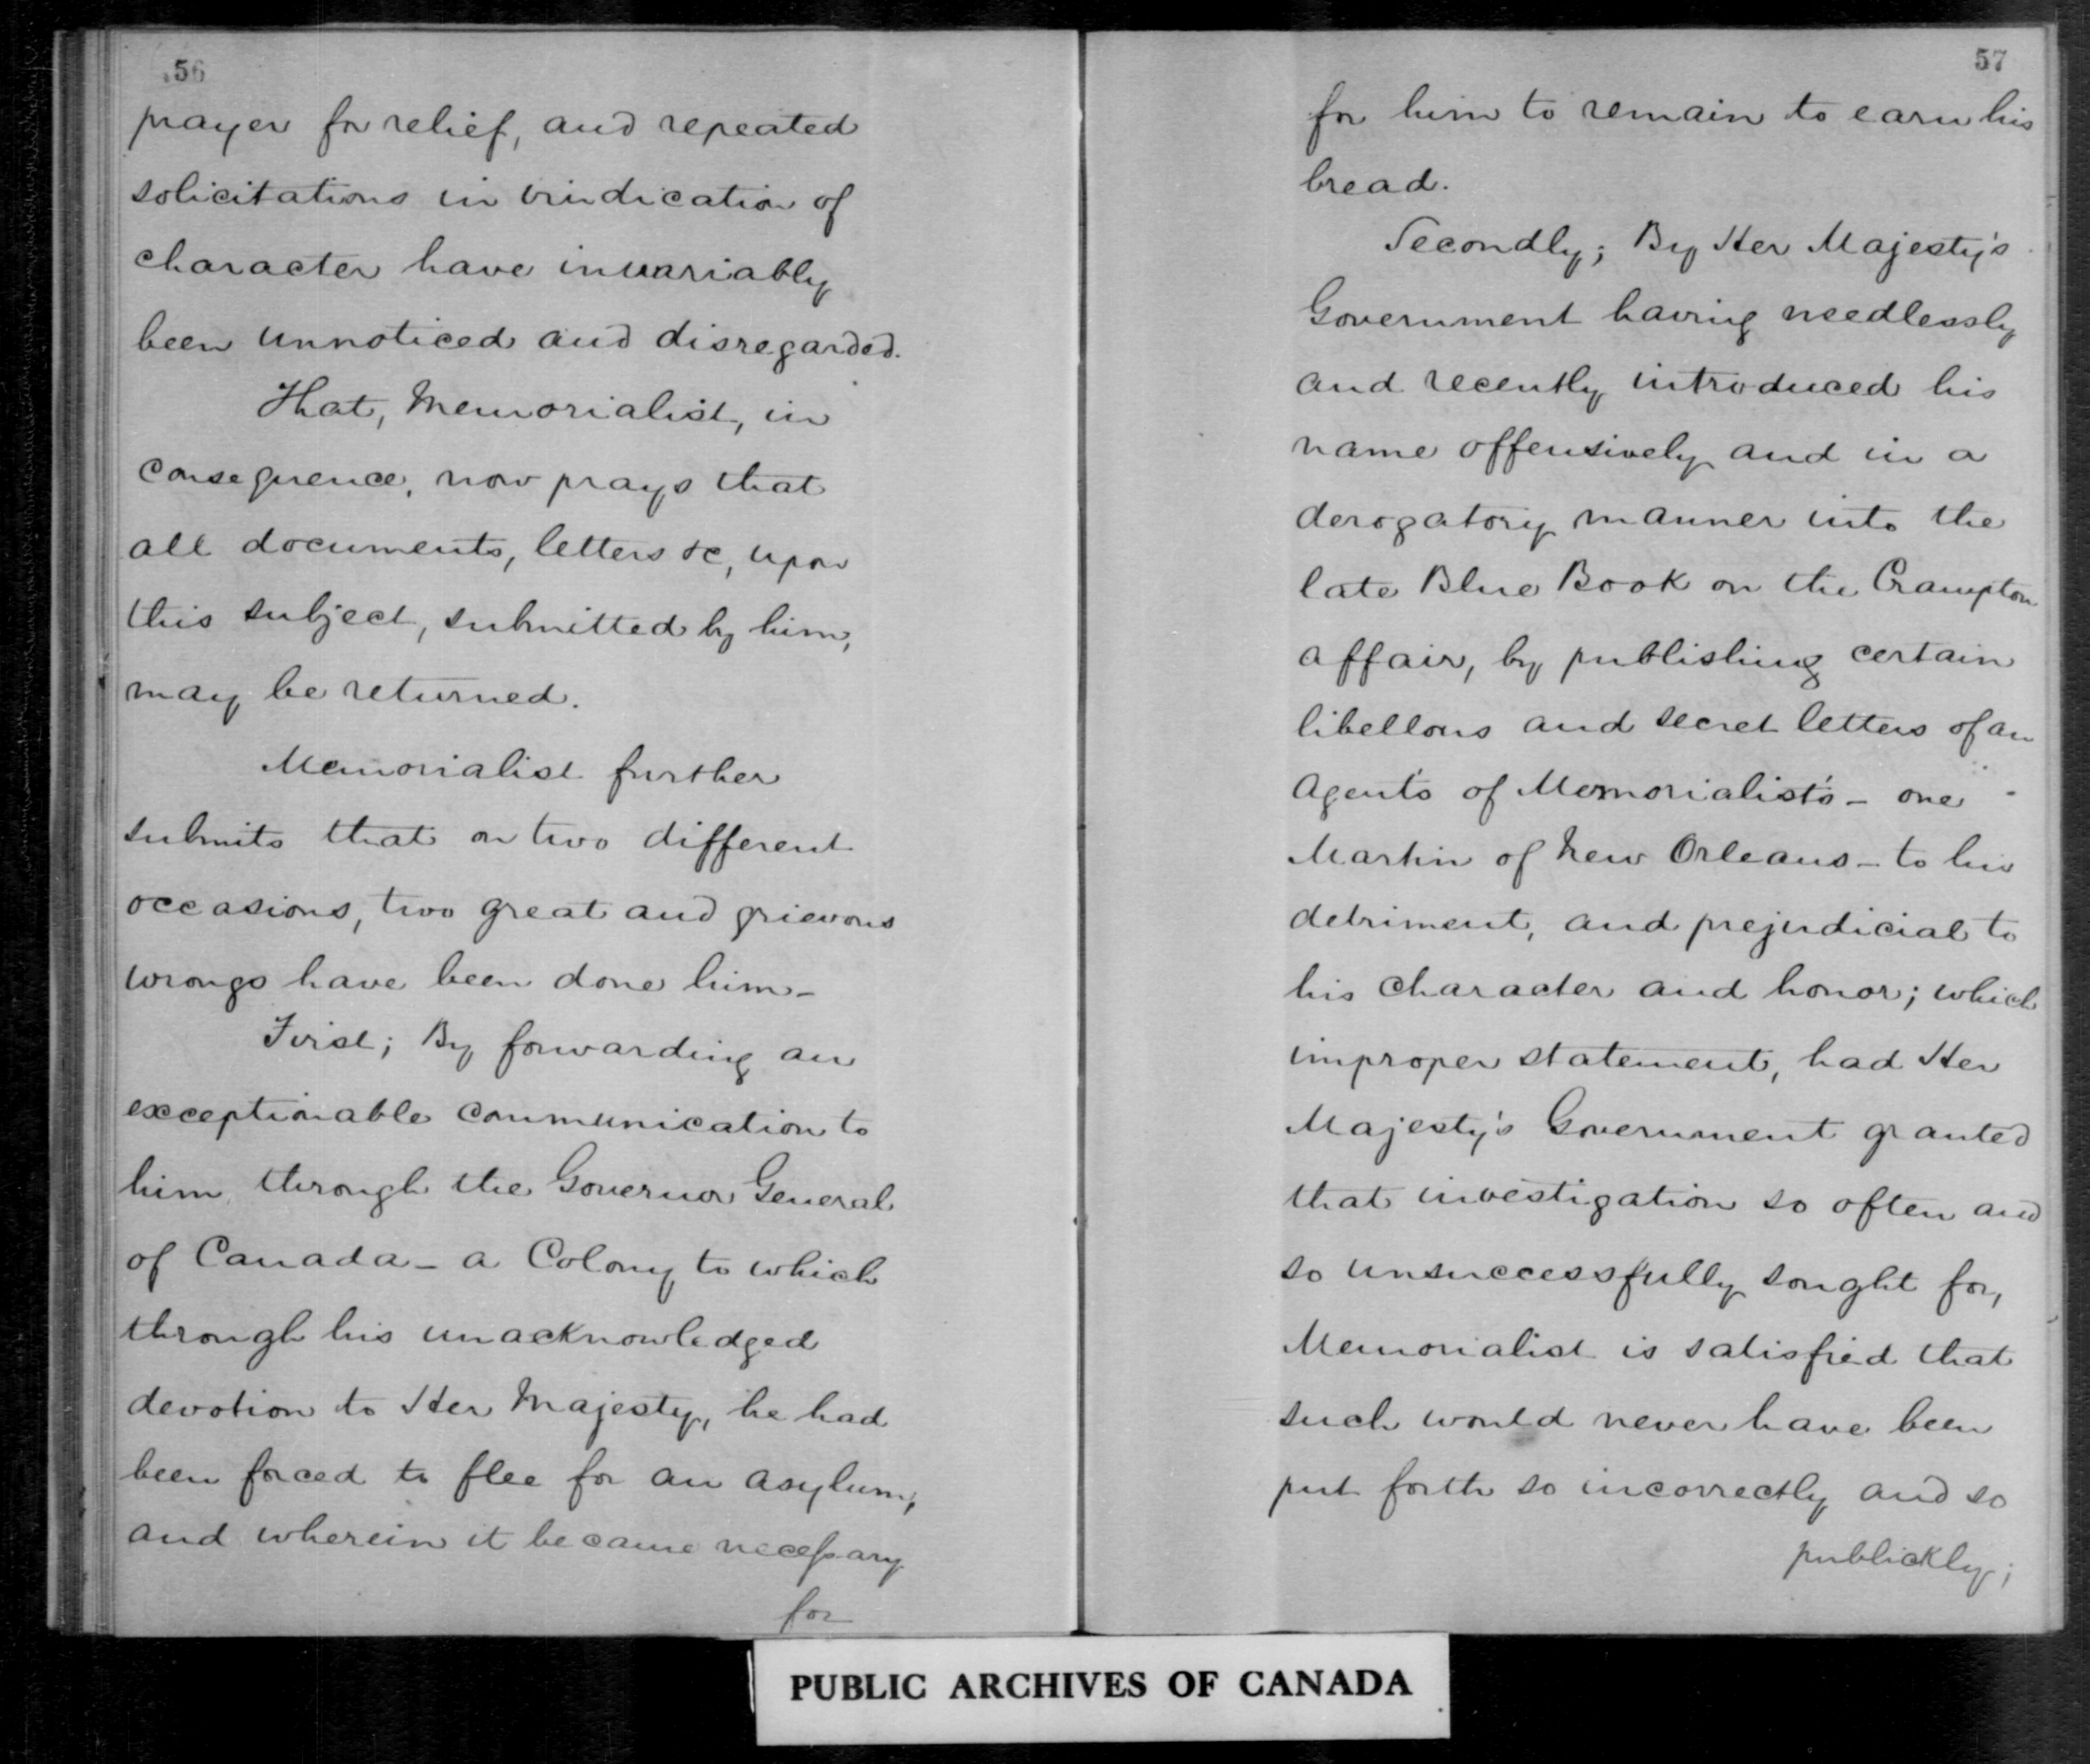 56
prayer for relief, and repeated
solicitations in vindication of
character have invariably
been unnoticed and disregarded.
That, Memorialist, in
consequence, now prays that
all documents, letters &c, upon
this subject, submitted by him,
may be returned.
Memorialist further
submits that on two different
occasions, two great and grievous
wrongs have been done him –
First; By forwarding an
exceptionable communication to
him through the Governor General
of Canada – a Colony to which
through his unacknowledged
devotion to Her Majesty, he had
been forced to flee for an asylum;
and wherein it became necessary
for
57
for him to remain to earn his
bread.
Secondly; By Her Majesty's
Government having needlessly
and recently introduced his
name offensively and in a
derogatory manner into the
late Blue Book on the Crampton
affair, by publishing certain
libellous and secret letters of an
Agent's of Memorialist's – one
Martin of New Orleans – to his
detriment, and prejudicial to
his character and honor; which
improper statement, had Her
Majesty's Government granted
that investigation so often and
so unsuccessfully sought for,
Memorialist is satisfied that
such would never have been
put forth so incorrectly and so
publickly;
PUBLIC ARCHIVES OF CANADA